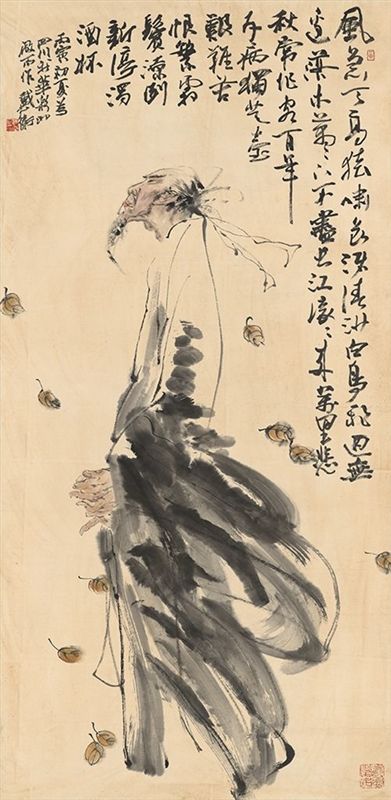 風急天高猿嘯哀渚清沙白鳥飛迴無
邊落木蕭〻下不盡長江滾〻來萬里悲
秋常作客百年
多病獨登臺
艱難苦
恨繁霜
鬢潦倒
新停濁
酒杯
丙寅初夏為
四川
而作戴衛